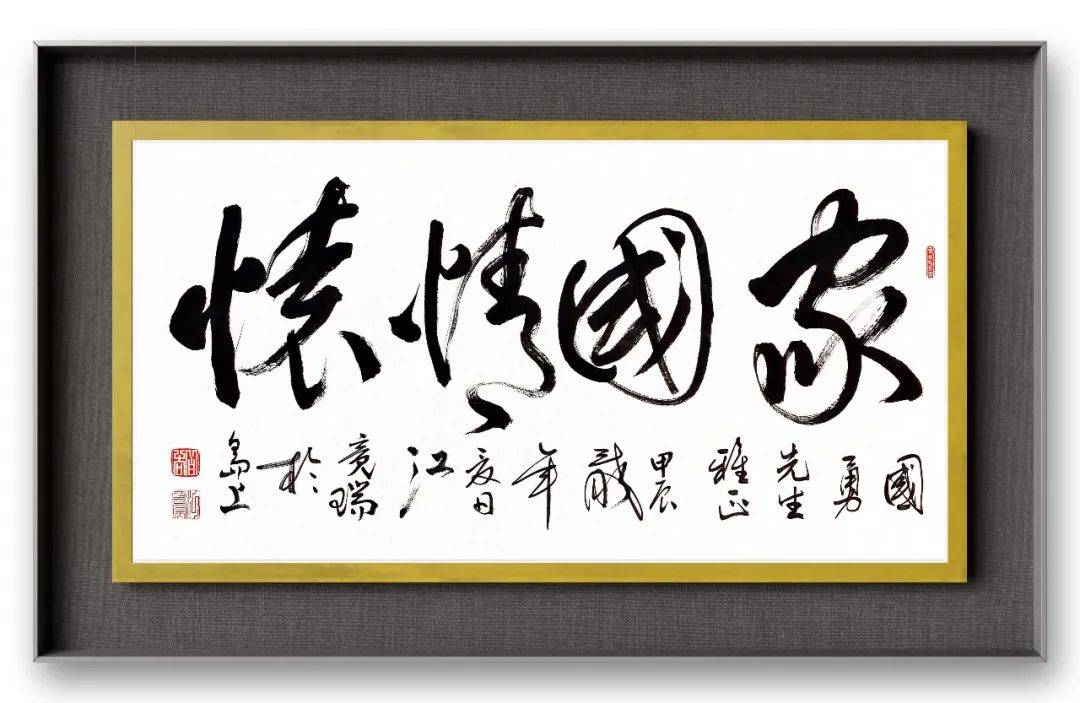 家國情懷
國勇先生雅正甲辰歲年夏日江竟瑞於島上